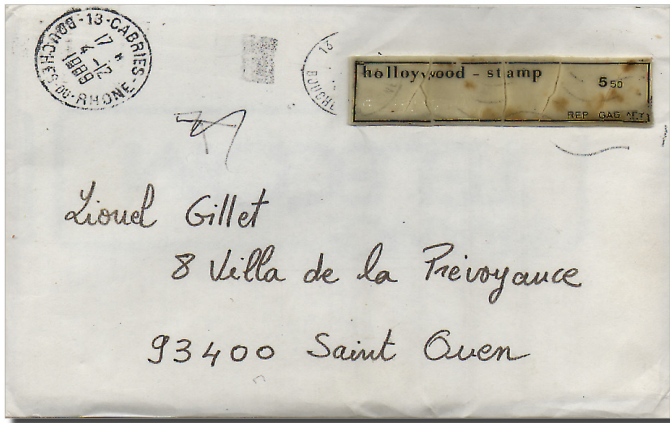 13-CABRIES
17 H
4-12
1989
BOUCHES-DU-RHONE
13
BOUCHE
holloywood - stamp
5 50
REP GAG
Lionel Gillet
8 Villa de la Prévoyance
93400 Saint Ouen